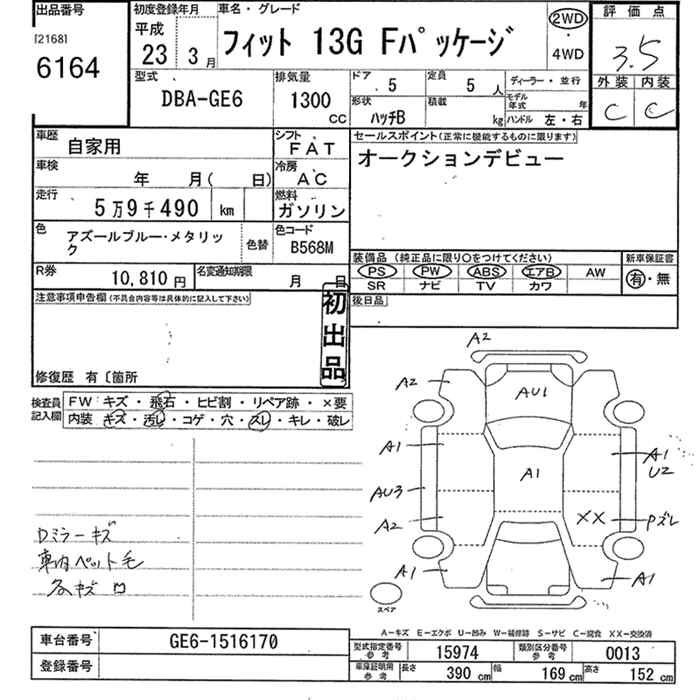 出品番号
[2168]
6164
初度登録年月
平成
23 3月
車名・グレード
フィット 13G Fパッケージ
2WD
・
4WD
評価点
3.5
外装 内装
C C
型式
DBA-GE6
排気量
1300
CC
ドア 5
定員 5人
形状
ハッチB
積載
kg
ディーラー・並行
モデル年式 年
ハンドル 左・右
車歴
自家用
シフト
FAT
車検
年 月( 日)
冷房
AC
走行
5万9千490 km
燃料
ガソリン
色
アズールブルー・メタリック
色替
色コード
B568M
R券
10,810円
名変通知期限
月 日
セールスポイント(正常に機能するものに限ります)
オークションデビュー
装備品(純正品に限り○をつけてください)
PS PW ABS エアB AW
SR ナビ TV カワ
新車保証書
有・無
後日品
注意事項申告欄(不具合内容等は具体的に記入して下さい)
初出品
修復歴 有〔箇所
検査員記入欄
FW キズ・飛石・ヒビ割・リペア跡・×要
内装 キズ・汚レ・コゲ・穴・スレ・キレ・破レ
Dミラーキズ
車内ペット毛
各キズ
A2
A2
AU1
A1
A1
A1
U2
AU3
A2
XX
Pズレ
A1
A1
スペア
A-キズ E-エクボ U-凹み W-補修跡 S-サビ C-腐食 XX-交換済
車台番号
GE6-1516170
登録番号
型式指定番号
参考
15974
類別区分番号
参考
0013
車庫証明用
参考
長さ 390 cm
幅 169 cm
高さ 152 cm